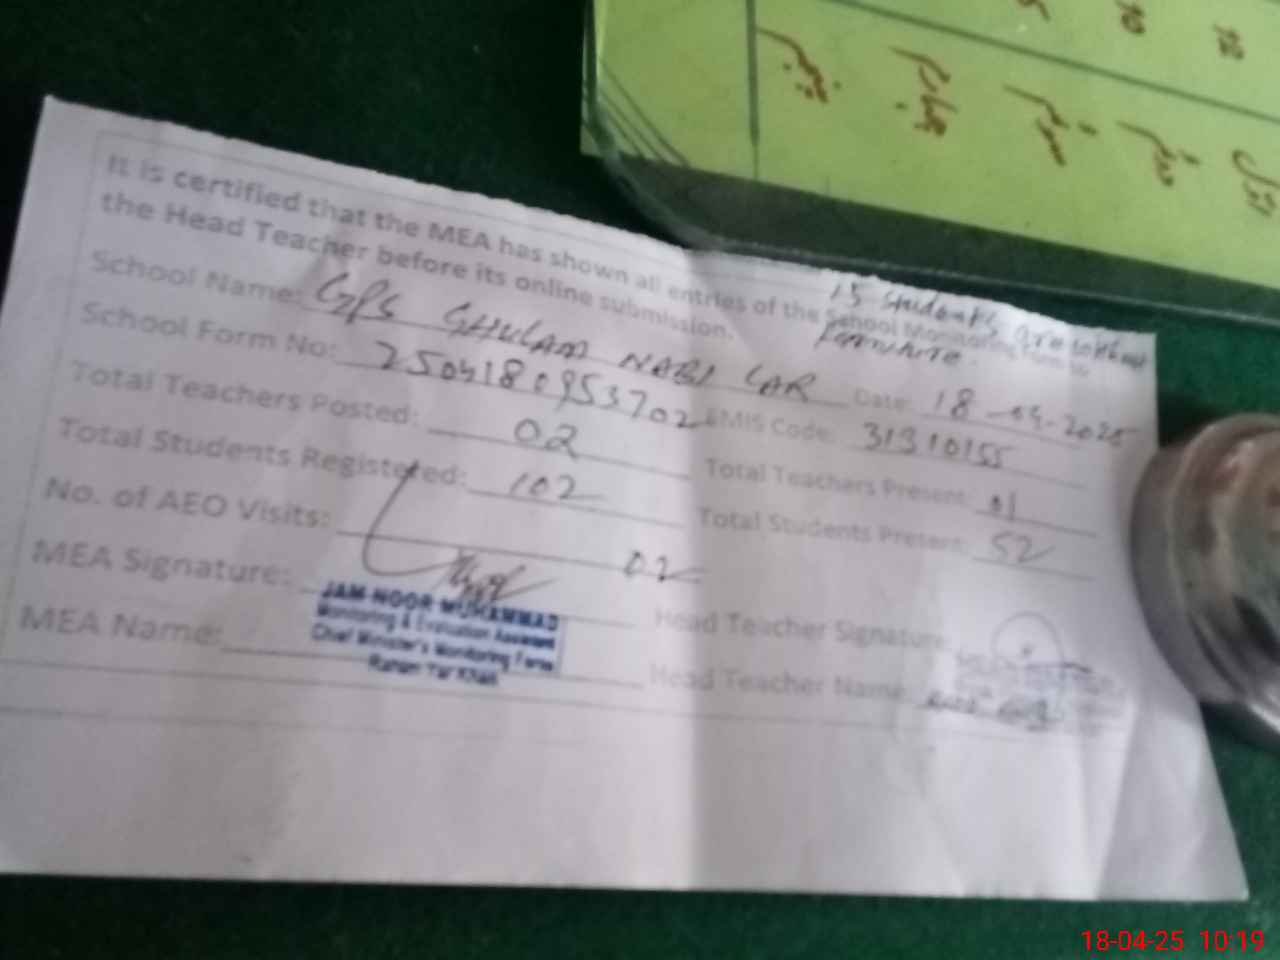 It is certified that the MEA has shown all entries of the School Monitoring Form to
the Head Teacher before its online submission.
15 students are without
furniture.
School Name: GPS GHULAM NABI LAR Date: 18-04-2025
School Form No: 2504180953702 EMIS Code: 31310155
Total Teachers Posted: 02 Total Teachers Present: 01
Total Students Registered: 102 Total Students Present: 52
No. of AEO Visits: 02
MEA Signature: Head Teacher Signature
MEA Name: Head Teacher Name:
JAM NOOR MUHAMMAD
Monitoring & Evaluation Assistant
Chief Minister's Monitoring Force
Rahim Yar Khan
18-04-25 10:19